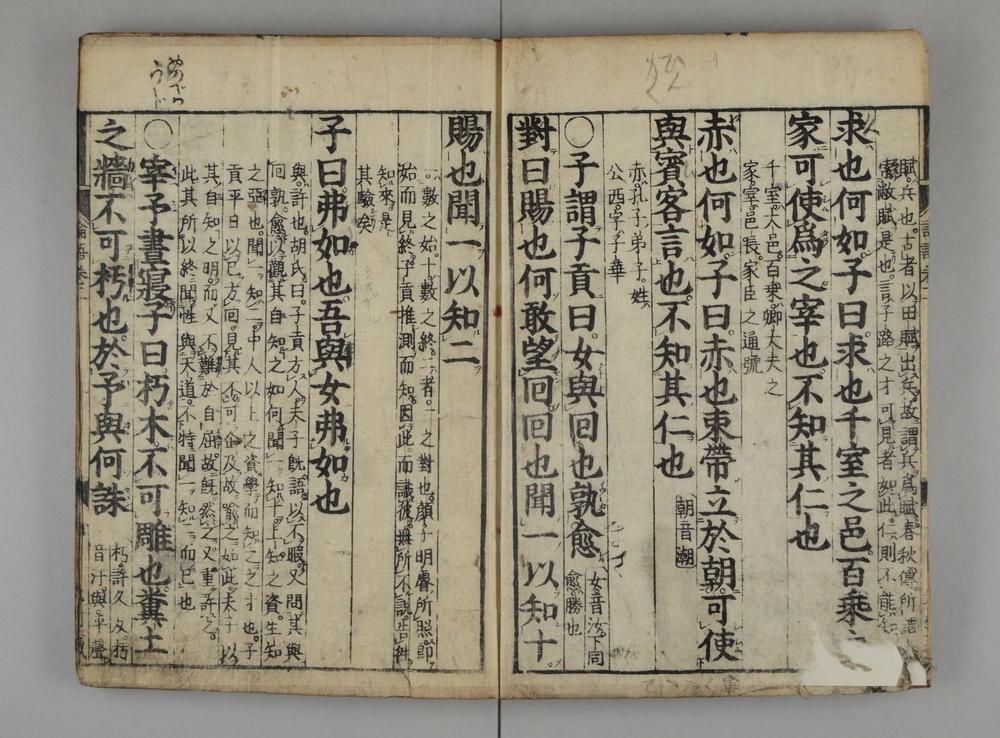 賦兵也古者以田賦出兵故謂兵爲賦春秋傳所謂
索敝賦是也言子路之才可見者如此仁則不能
求也何如子曰求也千室之邑百乘之
家可使爲之宰也不知其仁也
千室大邑百乘卿大夫之
家宰邑長家臣之通號
赤也何如子曰赤也束帶立於朝可使
與賓客言也不知其仁也
朝音潮
赤孔子弟子姓
公西字子華
〇子謂子貢曰女與回也孰愈
女音汝下同
愈勝也
對曰賜也何敢望回回也聞一以知十
賜也聞一以知二
一數之始十數之終二者一之對也顔子明睿所照即
始而見終子貢推測而知因此而識彼無所不說告往
知來是
其驗矣
子曰弗如也吾與女弗如也
與許也胡氏曰子貢方人夫子既語以不暇又問其與
回孰愈以觀其自知之如何聞一知十上知之資生知
之亞也聞一知二中人以上之資學而知之之才也子
貢平日以己方回見其不可企及故喩之如此夫子以
其自知之明而又不難於自屈故既然之又重許之
此其所以終聞性與天道不特聞一知二而已也
〇宰予晝寢子曰朽木不可雕也糞土
之牆不可杇也於予與何誅
朽許久反杇
音汙與平聲